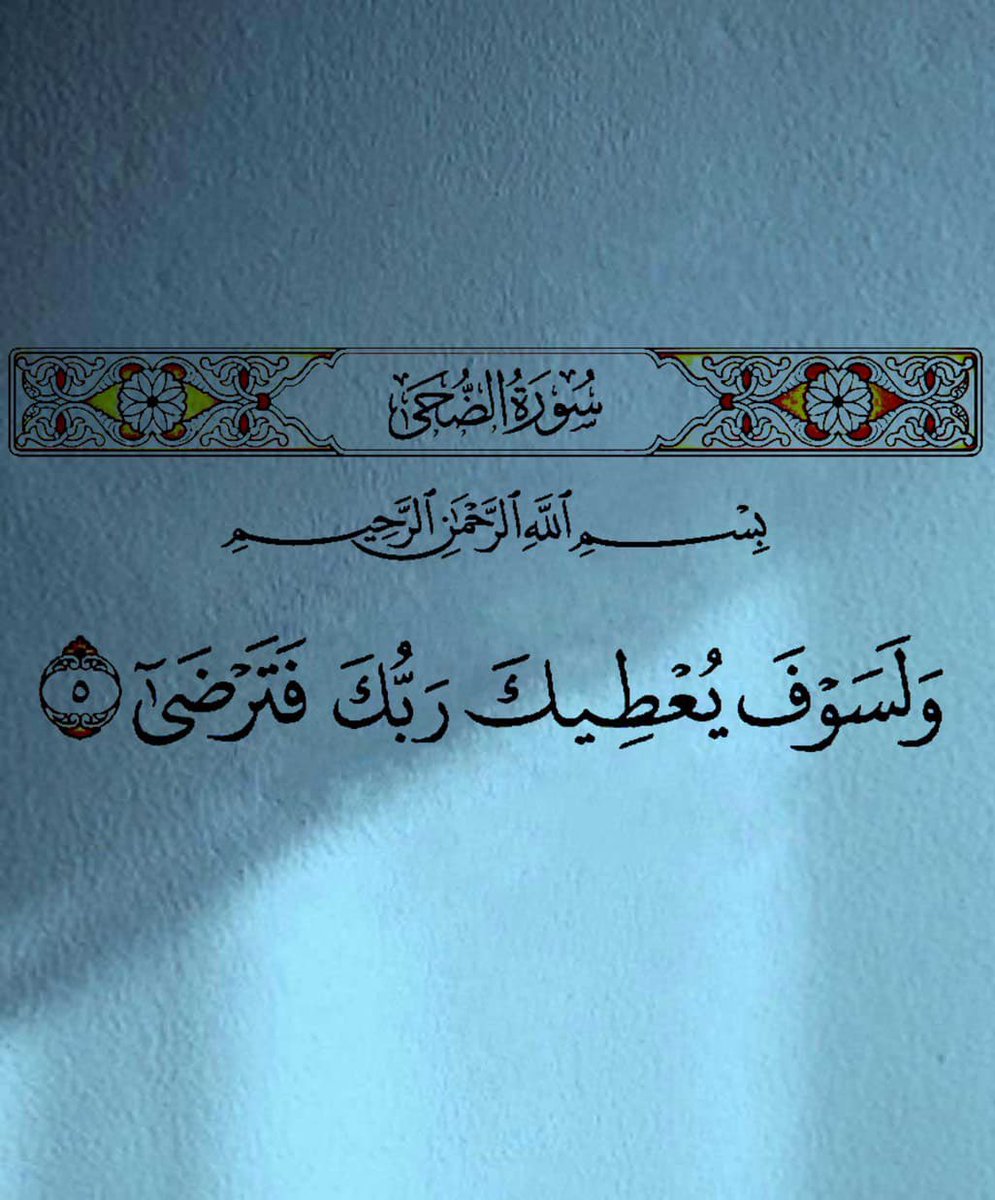 سُورَةُ الضُّحَىٰ
بِسْمِ ٱللَّهِ ٱلرَّحْمَٰنِ ٱلرَّحِيمِ
وَلَسَوْفَ يُعْطِيكَ رَبُّكَ فَتَرْضَىٰٓ ٥